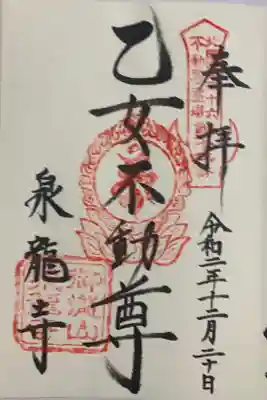 奉拝
令和二年十二月二十日
乙女不動尊
泉龍寺